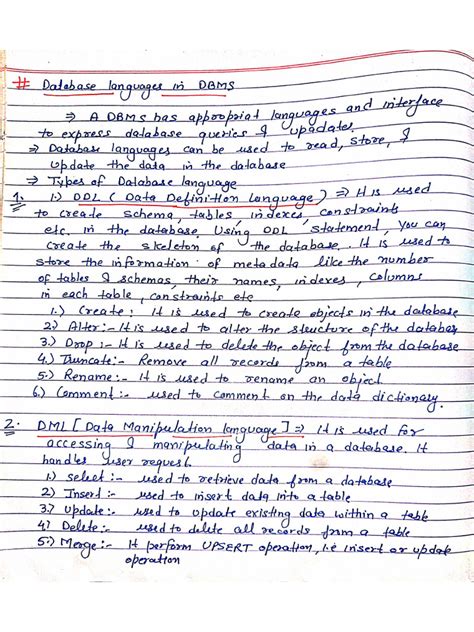 # Database languages in DBMS
⇒ A DBMS has appropriat languages and interface
to express database queries & upadates.
⇒ Database languages can be used to read, store, &
update the data in the database
⇒ Types of Database language
1. 1.) DDL ( Data Definition Language ) ⇒ It is used
to create schema, tables, indexes, constraints
etc. in the database. Using DDL statement, you can
create the skeleton of the database. It is used to
store the information of metadata like the number
of tables & schemas, their names, indexes, columns
in each table, constraints etc
1.) Create: It is used to create objects in the database
2.) Alter:- It is used to alter the structure of the databas
3.) Drop :- It is used to delete the object from the database
4.) Truncate:- Remove all records from a table
5.) Rename:- It is used to rename an object
6.) Comment:- used to comment on the data dictionary.
2. DML [ Data Manipulation language ] ⇒ It is used for
accessing & manipulating data in a database. It
handles user request.
1.) select:- used to retrieve data from a database
2) Insert:- used to insert data into a table
3.) update:- used to update existing data within a table
4) Delete:- used to delete all records from a table
5.) Merge:- It perform UPSERT operation, i.e insert or update
operation